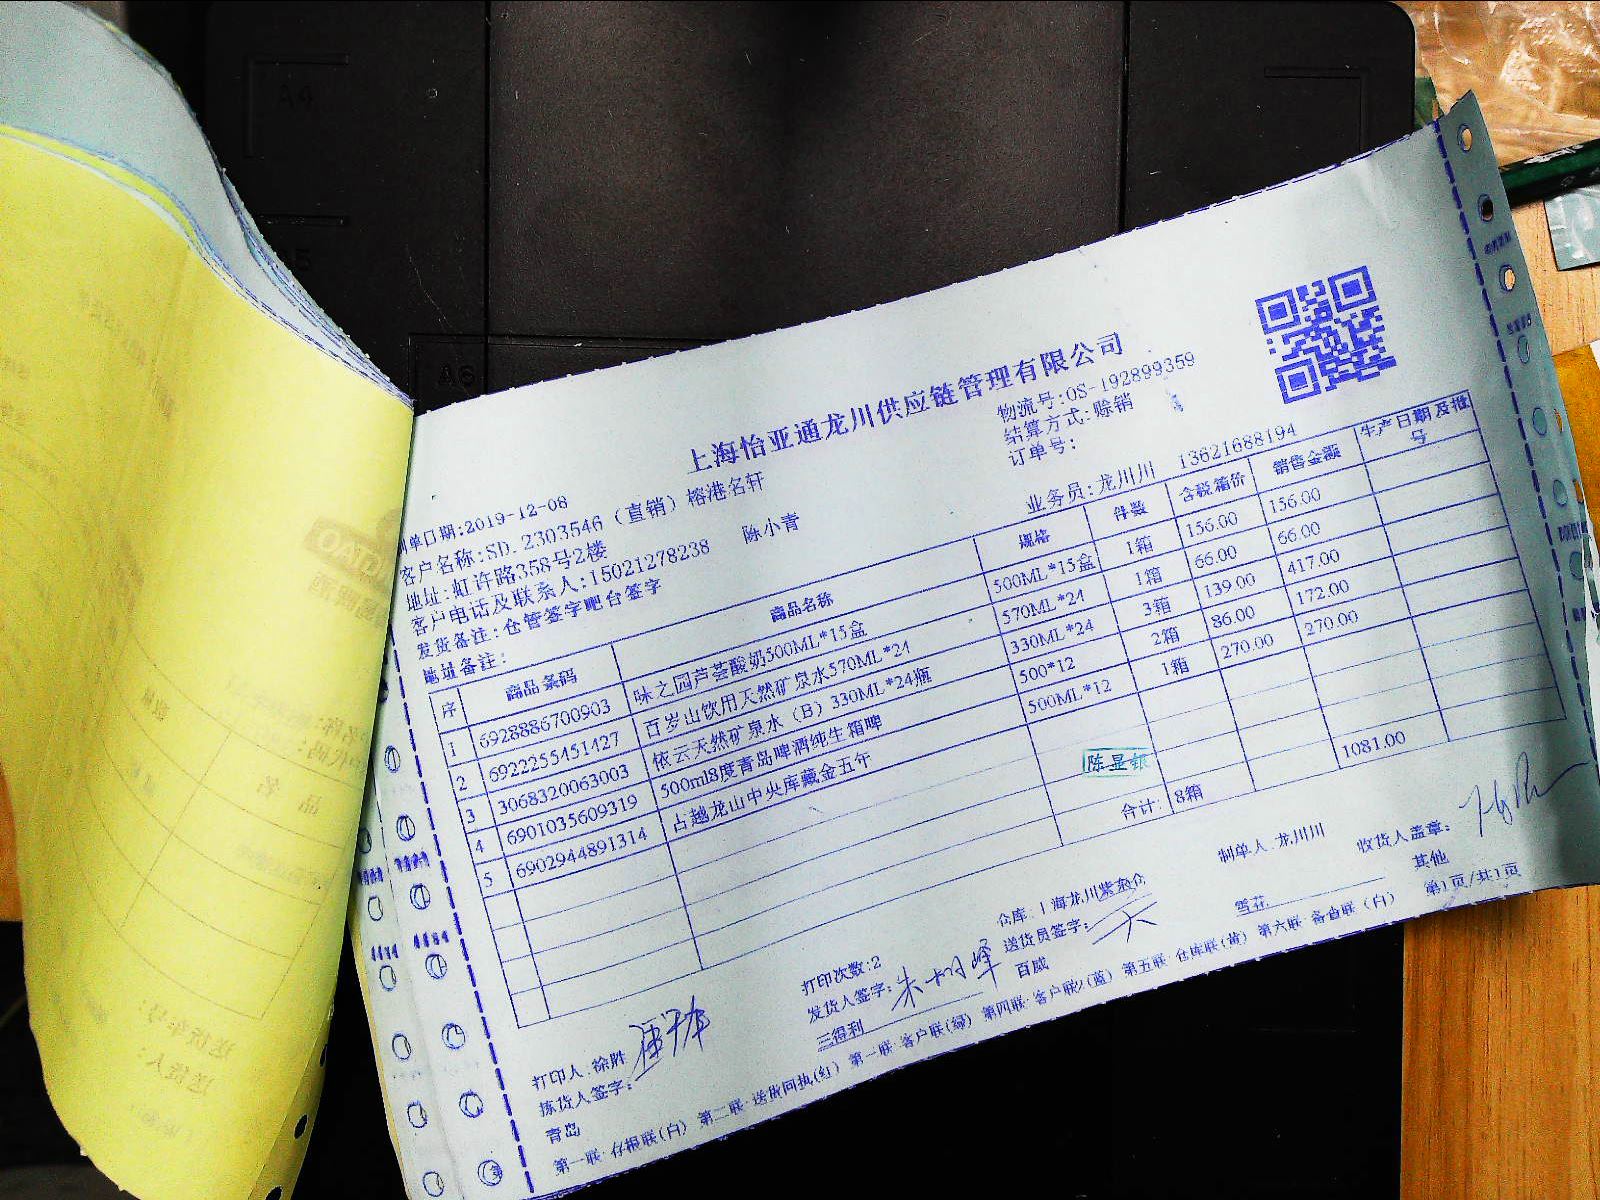 A4
A6
上海怡亚通龙川供应链管理有限公司
物流号:OS-192899359
结算方式:赊销
订单号:
制单日期:2019-12-08
客户名称:SD.2303546（直销）榕港名轩
地址:虹许路358号2楼
客户电话及联系人:15021278238 陈小青
业务员:龙川川 13621688194
发货备注:仓管签字吧台签字
地址备注:
序 商品条码 商品名称 规格 件数 含税箱价 销售金额 生产日期及批号
1 6928886700903 味之园芦荟酸奶500ML*15盒 500ML*15盒 1箱 156.00 156.00
2 6922255451427 百岁山饮用天然矿泉水570ML*24 570ML*24 1箱 66.00 66.00
3 3068320063003 依云天然矿泉水（B）330ML*24瓶 330ML*24 3箱 139.00 417.00
4 6901035609319 500ml8度青岛啤酒纯生箱啤 500*12 2箱 86.00 172.00
5 6902944891314 古越龙山中央库藏金五年 500ML*12 1箱 270.00 270.00
陈显银
合计: 8箱 1081.00
打印人:徐胜 打印次数:2 仓库:上海龙川紫东仓 制单人:龙川川 收货人盖章:
拣货人签字: 发货人签字:朱树峰 送货员签字:
青岛 三得利 百威 雪花 其他
第一联:存根联(白) 第二联:送货回执(红) 第一联:客户联(绿) 第四联:客户联2(蓝) 第五联:仓库联(黄) 第六联:备查联(白) 第1页/共1页